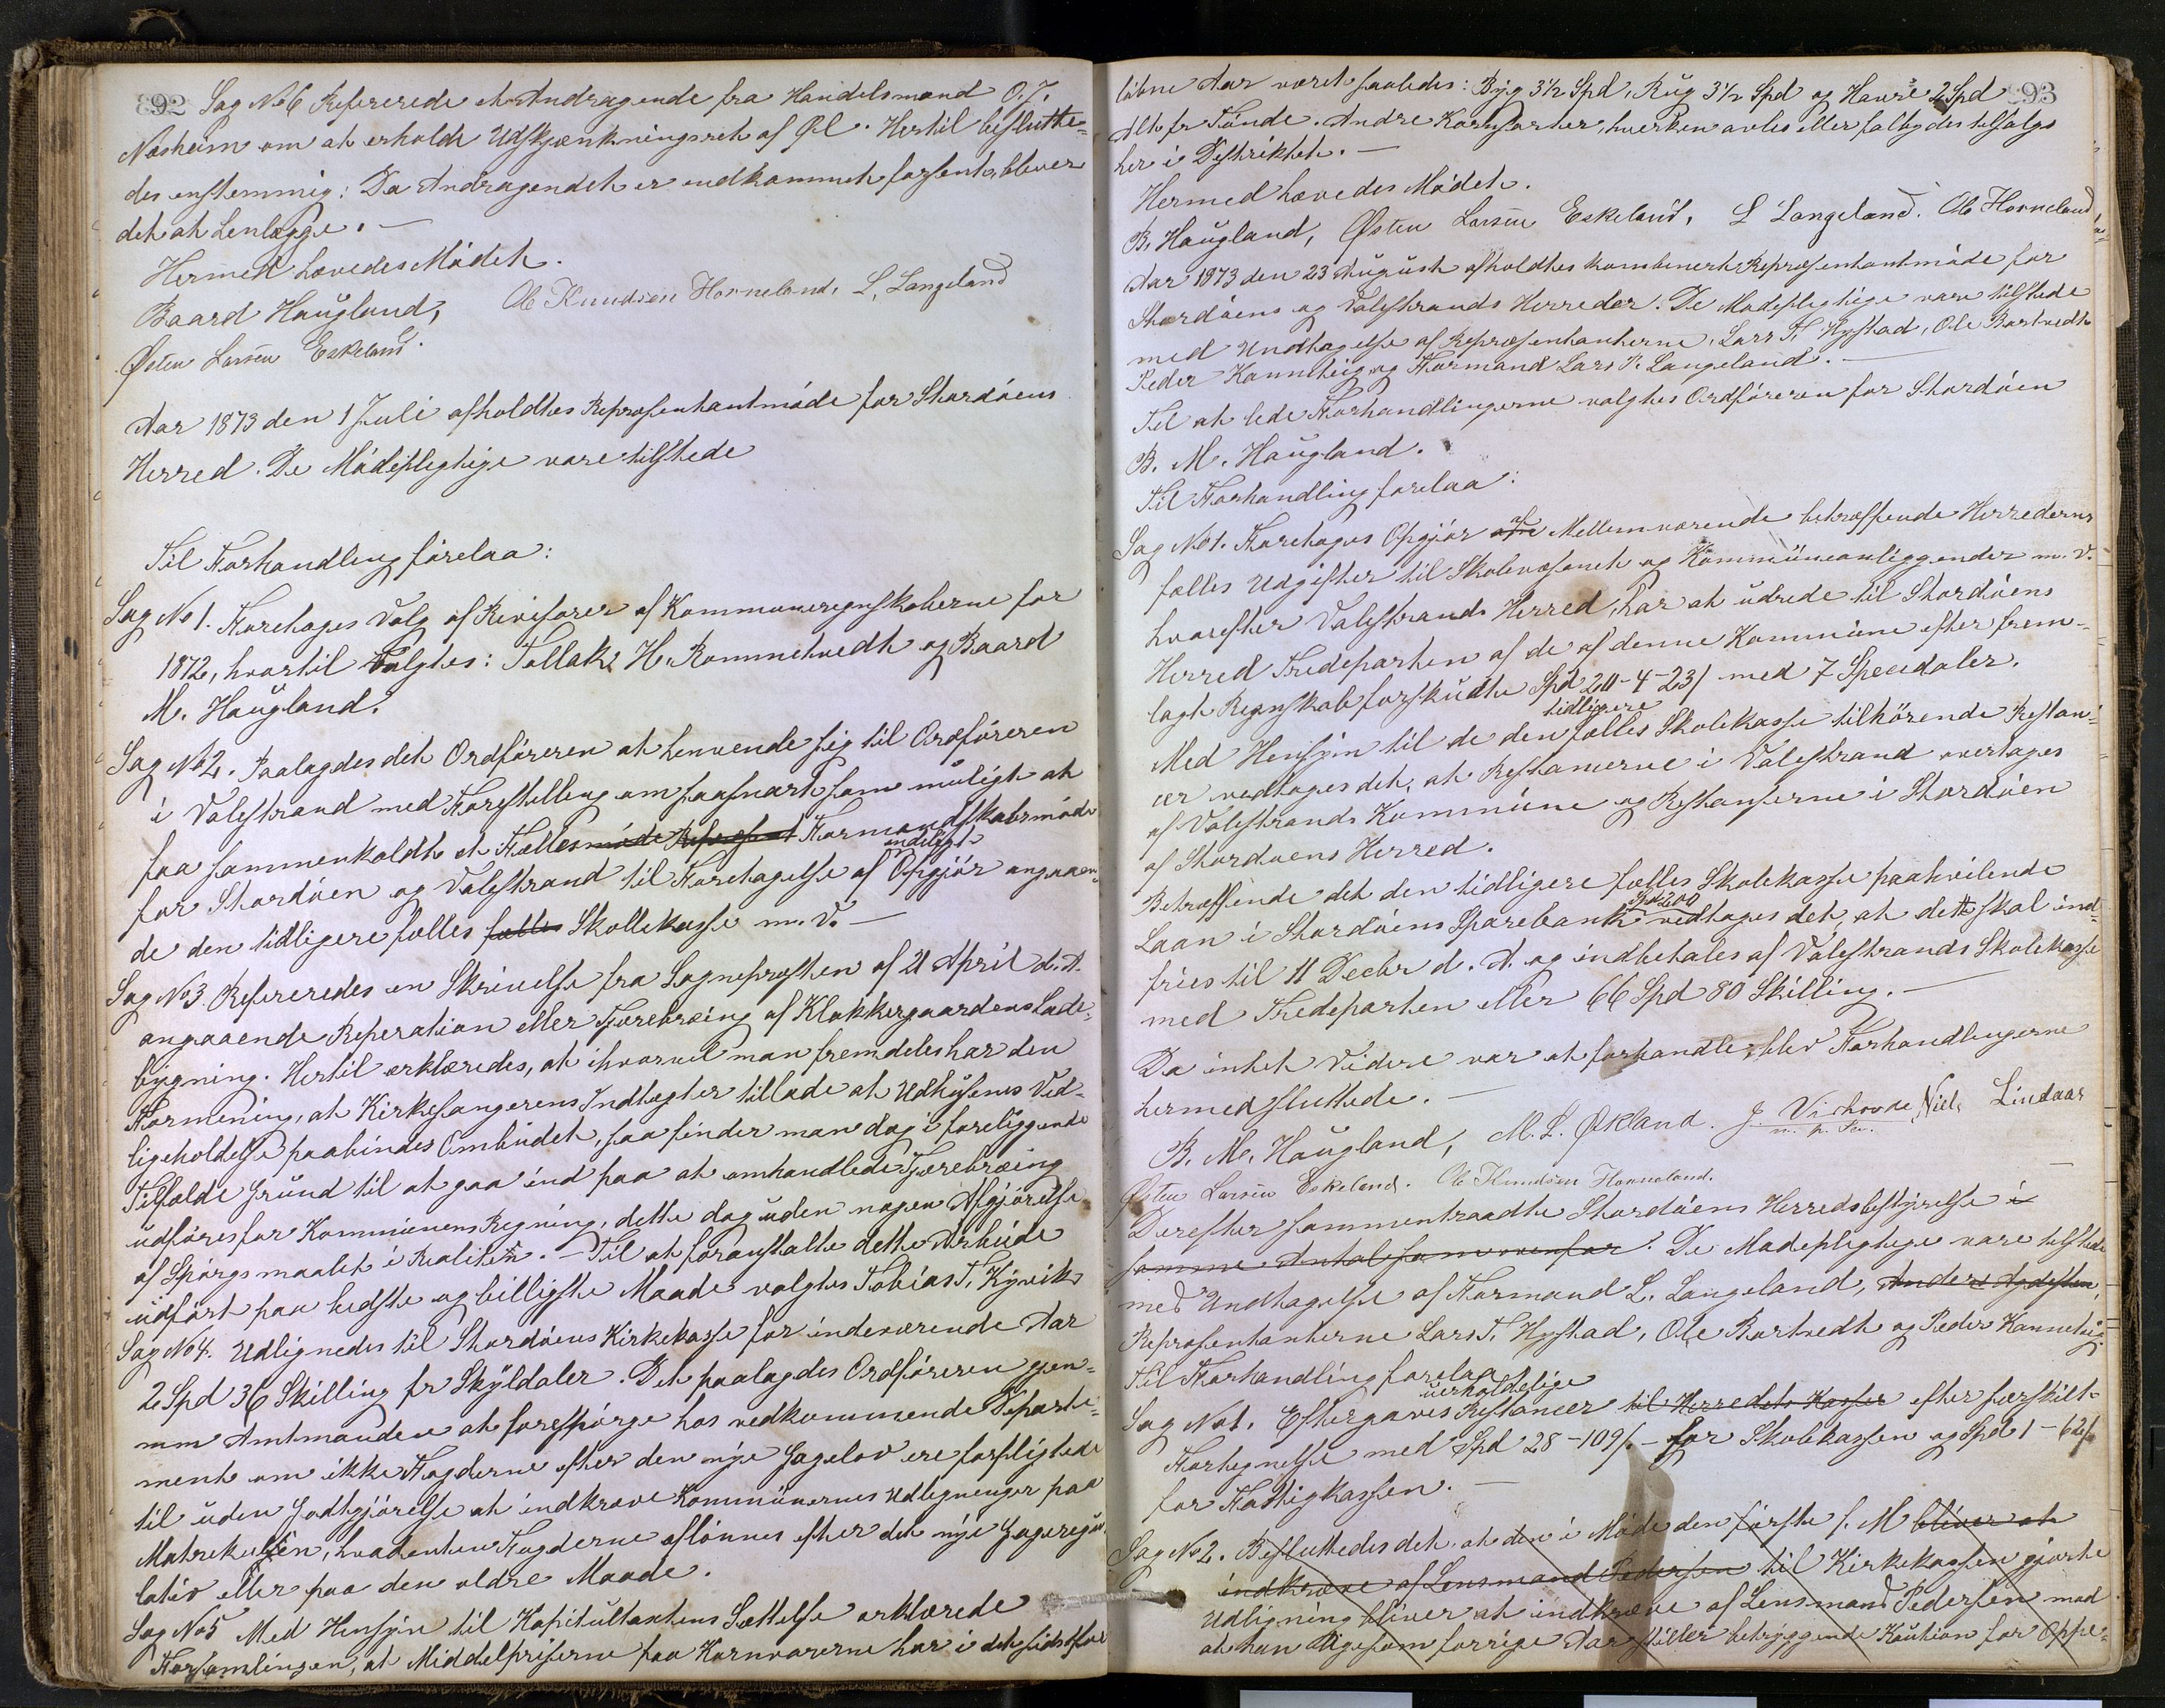 92
Sag No 6 Refererede et Andragende fra Handelsmand O. J.
Næsheim om at erholde Udskjænkningsret af Øl. Hertil beslutte-
des enstemmig: Da Andragendet er indkommet forsent, bliver
det at henlægge. —
Hermed hævedes Mødet.
Baard Haugland, Ole Knudsen Horneland, L. Langeland
Østen Larsen Eskeland.
Aar 1873 den 1 Juli afholdtes Repræsentantmøde for Stordøens
Herred. De Mødepligtige vare tilstede
Til Forhandling forelaa:
Sag No 1. Foretoges Valg af Revisorer af Kommuneregnskaberne for
1872, hvortil valgtes: Tollak H. Rommetvedt og Baard
M. Haugland.
Sag No 2. Paalagdes det Ordføreren at henvende sig til Ordføreren
i Valestrand med Forestilling om saasnart som muligt at
faa sammenkaldt et Fællesmøde Repræsent Formandskabsmøde
for Stordøen og Valestrand til Foretagelse af endeligt Opgjør angaaen-
de den tidligere fælles fælles Skollekasse m. V. —
Sag No 3. Refereredes en Skrivelse fra Sognepresten af 21 April d. A.
angaaende Reperation eller Tjærebræing af Klokkergaardens Lade-
bygning. Hertil erklæredes, at ihvorvel man fremdeles har den
Formening, at Kirkesangerens Indtægter tillade at Udhusenes Ved-
ligeholdelse paabindes Ombudet, saa finder man dog i foreliggende
Tilfælde Grund til at gaa ind paa at omhandlede Tjærebræing
udføres for Kommunens Regning, dette dog uden nogen Afgjørelse
af Spørgsmaalet i Realiteten. — Til at foranstalte dette Arbeide
udført paa bedste og billigste Maade valgtes Tobias T. Kyvik.
Sag No 4. Udlignedes til Stordøens Kirkekasse for indeværende Aar
2 Spd 36 Skilling pr Skyldaler. Det paalagdes Ordføreren gjen-
nem Amtmanden at forespørge hos vedkommende Departe-
ment om ikke Fogderne efter den nye Gagelov ere forpligtede
til uden Godtgjørelse at indkræve Kommunernes Udligninger paa
Matrekulen, hvadenten Fogderne aflønnes efter det nye Gageregu-
lativ eller paa den ældre Maade.
Sag No 5 Med Hensyn til Kapitultaxtens Sættelse erklærede
Forsamlingen, at Middelpriserne paa Kornvarerne har i det sidstfor-
93
løbne Aar været saaledes: Byg 3 1/2 Spd, Rug 3 1/2 Spd og Havre 2 Spd
Alt pr Tønde. Andre Kornsorter hverken avles eller falbydes tilsalgs
her i Distriktet. —
Hermed hævedes Mødet.
B. Haugland, Østen Larsen Eskeland, L Langeland. Ole Horneland
Aar 1873 den 23 August afholdtes kombineret Repræsentantmøde for
Stordøens og Valestrands Herreder. De Mødepligtige vare tilstede
med Undtagelse af Repræsentanterne, Lars T. Hystad, Ole Bartvedt
Peder Kanneteig og Formand Lars P. Langeland. —
Til at lede Forhandlingerne valgtes Ordføreren for Stordøen
B. M. Haugland.
Til Forhandling forelaa:
Sag No 1. Foretoges Opgjør af Mellemværende betræffende Herredernes
fælles Udgifter til Skolevæsenet og Kommuneanliggender m. V.
hvorefter Valestrands Herred har at udrede til Stordøens
Herred Tredeparten af de af denne Kommune efter frem-
lagt Regnskab forskudte Spd 20-4-23 / med 7 Speedaler.
Med Hensyn til de den tidligere fælles Skolekasse tilhørende Restan-
cer vedtages det, at Restancerne i Valestrand overtages
af Valestrands Kommune og Restanserne i Stordøen
af Stordøens Herred.
Betræffende det den tidligere fælles Skolekasse paahvilende
Laan i Stordøens Sparebank Spd 200 vedtages det, at dette skal ind-
fries til 11 Decbr d. A. og indbetales af Valestrands Skolekasse
med Tredeparten eller 66 Spd 80 Skilling. —
Da intet Videre var at forhandle, blev Forhandlingerne
hermed sluttede. —
B. M. Haugland, M. L. Økland. J. Vihovde m. p. Pen. Niels Lindaas
Østen Larsen Eskeland. Ole Knudsen Horneland.
Derefter sammentraadte Stordøens Herredsbestyrelse i
samme Antal som ovenfor. De Mødepligtige vare tilstede
med Undtagelse af Formand L. Langeland,
Repræsentanterne Lars T. Hystad, Ole Bartvedt og Peder Kanneteig.
Til Forhandling forelaa
Sag No 1. Eftergaves uerholdelige Restancer til Herredets Kasser efter særskilt
Fortegnelse med Spd 28-109/ - for Skolekassen og Spd 1-62/
for Fattigkassen. —
Sag No 2. Besluttedes det, at den i Møde den første f. M bliver at
indkræve af Lensmand Pedersen til Kirkekassen gjorte
Udligning bliver at indkræve af Lensmand Pedersen mod
at han ligesom forrige Aar stiller betryggende Kaution for Oppe-